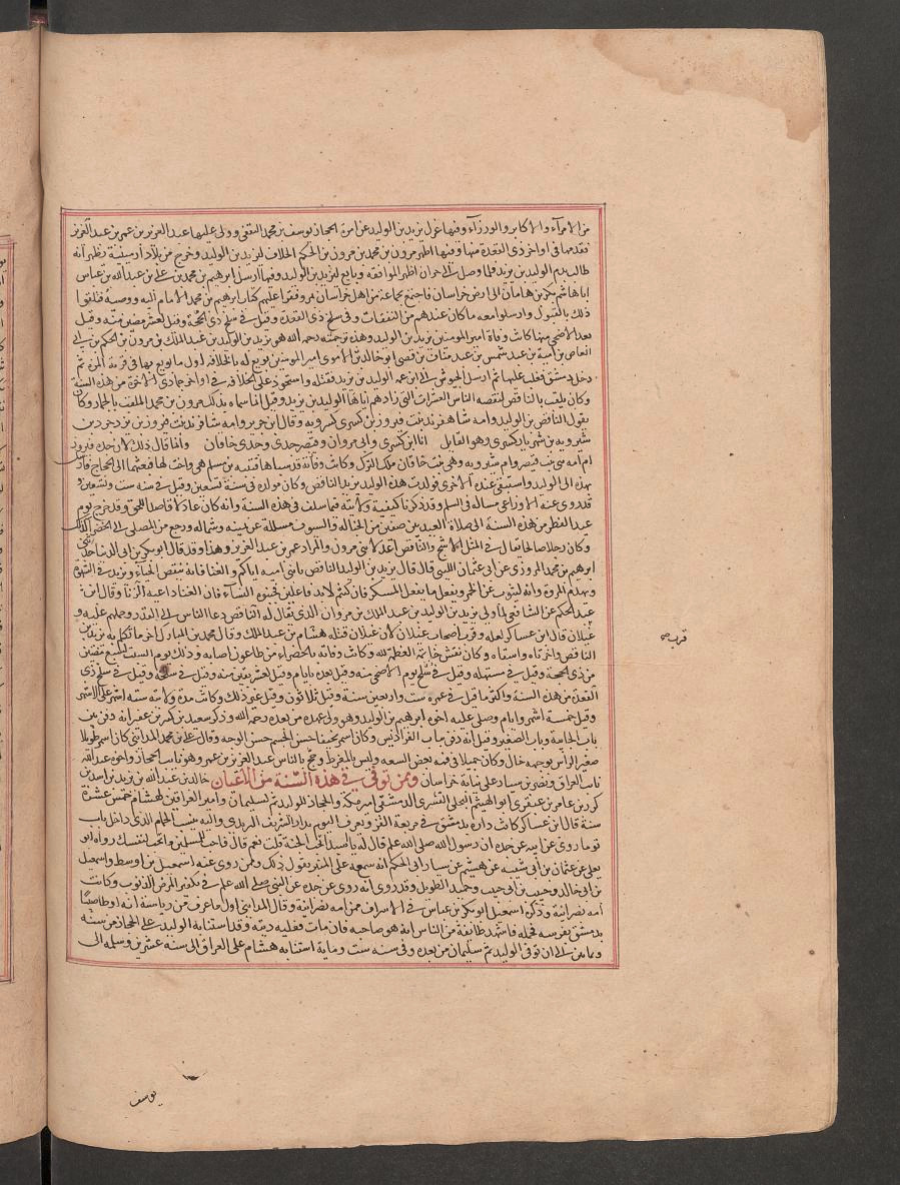 من الامرآء والاكابر والوزرآء وفيها عزل يزيد بن الوليد عن امرة الحجاز يوسف بن محمد الثقفي وولى عليها عبد العزيز بن عمر بن عبد العزيز
فقدمها في اواخر ذي القعدة منها وفيها اظهر مرون بن محمد بن مرون بن الحكم الخلاف ليزيد بن الوليد وخرج من بلاد ارمينية يظهر انه
طالب بدم الوليد بن يزيد فلما وصل الى حران اظهر الموافقة وبايع ليزيد بن الوليد وفيها ارسل ابرهيم بن محمد بن علي بن عبد الله بن عباس
ابا هاشم بكر بن هامان الى ارض خراسان فاجتمع بجماعة من اهل خراسان بمرو فقرا عليهم كتاب ابرهيم بن محمد الامام اليه ووصيته فتلقوا
ذلك بالقبول وارسلوا معه ما كان عندهم من النفقات وفي سلخ ذي القعدة وقيل في سلخ ذي الحجة وقيل لعشر مضين منه وقيل
بعد الاضحى منها كانت وفاة امير المومنين يزيد بن الوليد وهذه ترجمته رحمه الله هو يزيد بن الوليد بن عبد الملك بن مرون بن الحكم بن ابي
العاص بن امية بن عبد شمس بن عبد مناف بن قصي ابو خالد الاموي امير المومنين بويع له بالخلافة اول ما بويع بها في قرية المزة ثم
دخل دمشق فغلب عليها ثم ارسل الجيوش الى ابن عمه الوليد بن يزيد فقتله واستحوذ على الخلافة في اواخر جمادى الاخرة من هذه السنة
وكان يلقب بالناقص لنقصه الناس العشرات التي زادهم اياها الوليد بن يزيد وقيل انما سماه بذلك مرون بن محمد الملقب بالحمار وكان
يقول الناقص بن الوليد وامه شاهفرند بنت فيروز بن كسرى كسرويه وقال ابن جرير وامه شافرند بنت فيروز بن يزدجرد بن
شيرويه بن شهريار بن كسرى وهو القايل انا ابن كسرى وابي مروان وقيصر جدي وجدي خاقان وانما قال ذلك لان جده فيروز
ام امه بنت قيصر وام شيرويه وهي بنت خاقان ملك الترك وكانت قد سباها قتيبة بن مسلم هي واخت لها فبعثهما الى الحجاج فارسل
بهذه الى الوليد واستبقى عنده الاخرى فولدت هذه للوليد يزيد الناقص وكان مولده في سنة تسعين وقيل في سنه ست وتسعين و
قد روى عنه الاوزاعي مسالة في السلم وقد ذكرنا كيفية ولايته فيما سلف في هذه السنة وانه كان عادلا وقد خرج يوم
عيد الفطر من هذه السنة الى صلاة العيد بين صفين من الخيالة والسيوف مسللة عن يمينه وشماله ورجع من المصلى الى الخضرا كذلك
وكان رجلا صالحا يقال في المثل الاشج والناقص اعدلا بني مرون والمراد عمر بن عبد العزيز وهذا وقد قال ابو بكر بن ابي الدنيا حدثني
ابرهيم بن محمد المروزي عن ابي عثمان الليثي قال قال يزيد بن الوليد الناقص يا بني اميه اياكم والغنا فانه ينقص الحيآء ويزيد في الشهوة
ويهدم المروة وانه لينوب عن الخمر ويفعل ما يفعل المسكر فان كنتم لا بد فاعلين فجنبوه النسآء فان الغنا داعية الزنا وقال ابن
عبد الحكم عن الشافعي لما ولي يزيد بن الوليد بن عبد الملك بن مروان الذي يقال له الناقص دعا الناس الى القدر وحملهم عليه و
غيلان قال ابن عساكر لعله وقرب اصحاب غيلان لان غيلان قتله هشام بن عبد الملك وقال محمد بن المبارك آخر ما تكلم به يزيد بن
الناقص واحزناه واسقاه وكان نقش خاتمه العظمة لله وكانت وفاته بالخضراء من طاعون اصابه وذلك يوم السبت لسبع مضين
من ذي الحجة وقيل في مستهله وقيل في يوم الاضحى منه وقيل بعده بايام وقيل لعشر بقين منه وقيل في سلخه وقيل في سلخ ذي
القعدة من هذه السنة واكثر ما قيل في عمره ست واربعين سنة وقيل ثلاثون وقيل غير ذلك وكانت مدة ولايته ستة اشهر على الاشهر
وقيل خمسة اشهر وايام وصلى عليه اخوه ابرهيم بن الوليد وهو ولي عهده من بعده رحمه الله وذكر سعيد بن كثير بن عفير انه دفن بين
باب الجابية وباب الصغير وقيل انه دفن بباب الفراديس وكان اسمر نحيفا حسن الجسم حسن الوجه وقال علي بن محمد المدايني كان اسمر طويلا
صغير الراس بوجهه خال وكان جميلا في فمه بعض السعه وليس بالمفرط وحج بالناس عبد العزيز بن عمر وهو نايب الحجاز واخوه عبد الله
نايب العراق ونصر بن سيار على نيابة خراسان وممن توفي في هذه السنة من الاعيان خالد بن عبد الله بن يزيد بن اسد بن
كرز بن عامر بن عبقري ابو الهيثم البجلي القسري الدمشقي امير مكة والحجاز للوليد ثم لسليمان وامير العراقين لهشام خمس عشرة
سنة قال ابن عساكر كانت داره بدمشق في مربعة القز وتعرف اليوم بدار الشريف اليزيدي واليه ينسب الحمام الذي داخل باب
توما روى عن ابيه عن جده ان رسول الله صلى الله عليه وسلم قال له يا اسد اتحب الجنة قلت نعم قال فاحب للمسلمين ما تحب لنفسك رواه ابو
يعلى عن عثمان بن ابي شيبه عن هشيم عن سيار ابي الحكم انه سمعه على المنبر يقول ذلك وممن روى عنه اسمعيل بن اوسط واسمعيل
بن ابي خالد وحبيب بن ابي حبيب وحميد الطويل وقد روى انه روى عن جده عن النبي صلى الله عليه وسلم في تكفير المرض الذنوب وكانت
امه نصرانية وذكره اسمعيل ابو بكر بن عياش في الاشراف ممن امه نصرانية وقال المدايني اول ما عرف من رياسته انه اوطا صبيا
بدمشق بفرسه فحمله فاشهد طايفة من الناس انه هو صاحبه فان مات فعليه ديته وقد استنابة الوليد على الحجاز من سنة
وثمانين الى ان توفي الوليد ثم سليمان من بعده وفي سنه ست وماية استنابه هشام على العراق الى سنه عشرين وسلمه الى
قرب صح
يوسف